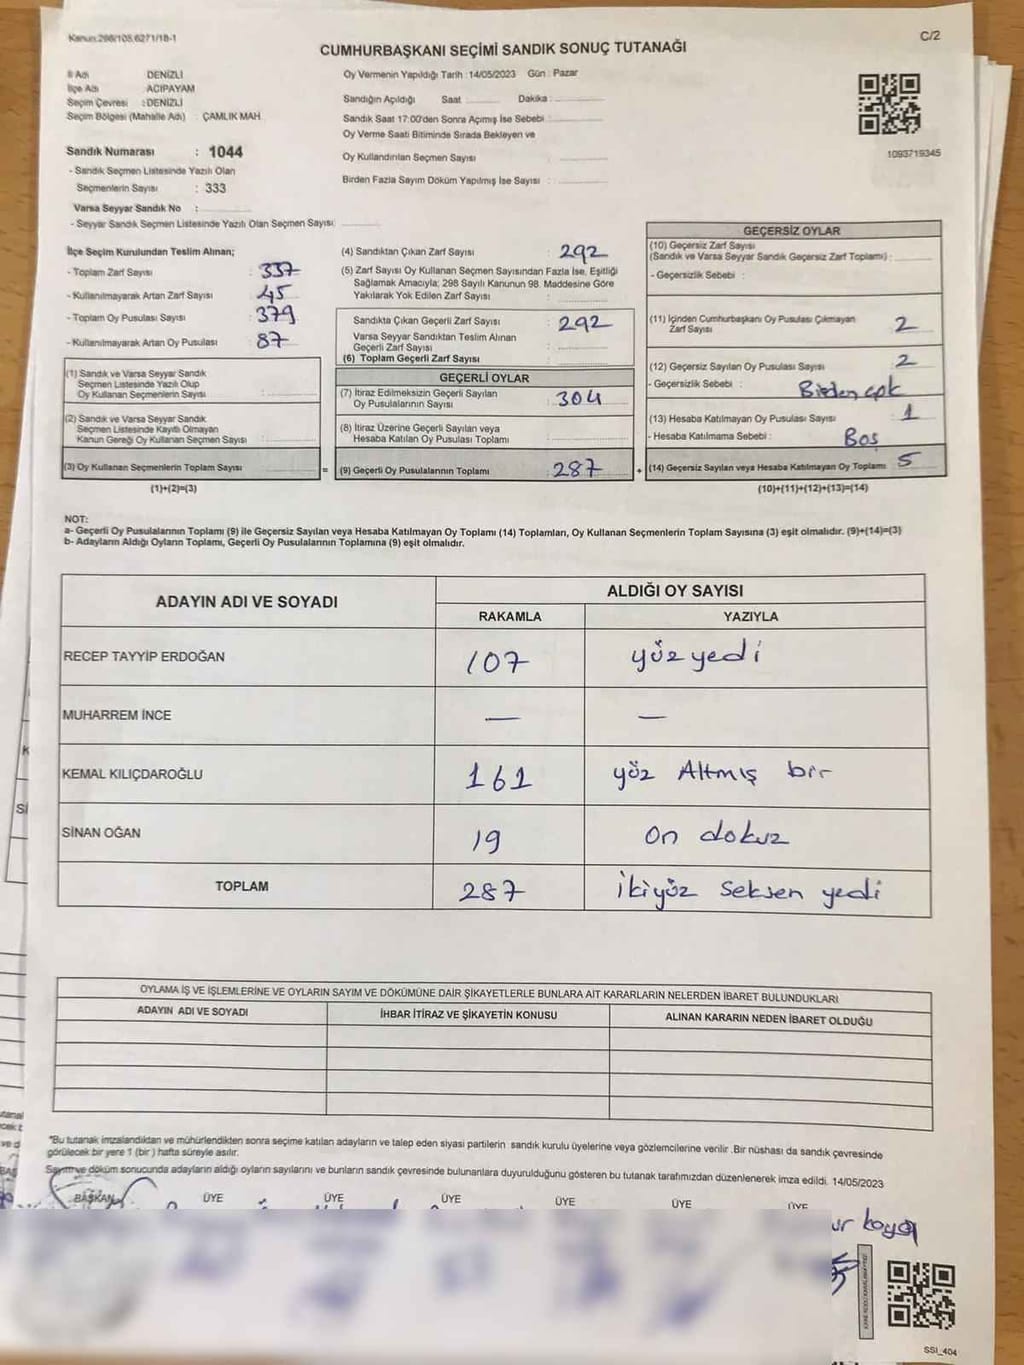 Kanun:298/105,6271/18-1
C/2
CUMHURBAŞKANI SEÇİMİ SANDIK SONUÇ TUTANAĞI
İl Adı DENİZLİ
İlçe Adı ACIPAYAM
Seçim Çevresi : DENİZLİ
Seçim Bölgesi (Mahalle Adı) : ÇAMLIK MAH.
Sandık Numarası : 1044
- Sandık Seçmen Listesinde Yazılı Olan
Seçmenlerin Sayısı : 333
Varsa Seyyar Sandık No :
- Seyyar Sandık Seçmen Listesinde Yazılı Olan Seçmen Sayısı:
Oy Vermenin Yapıldığı Tarih :14/05/2023 Gün : Pazar
Sandığın Açıldığı Saat Dakika :
Sandık Saat 17:00'den Sonra Açımış İse Sebebi :
Oy Verme Saati Bitiminde Sırada Bekleyen ve
Oy Kullandırılan Seçmen Sayısı
Birden Fazla Sayım Döküm Yapılmış İse Sayısı :
1093719345
İlçe Seçim Kurulundan Teslim Alınan;
- Toplam Zarf Sayısı : 337
- Kullanılmayarak Artan Zarf Sayısı : 45
- Toplam Oy Pusulası Sayısı : 379
- Kullanılmayarak Artan Oy Pusulası : 87
(1) Sandık ve Varsa Seyyar Sandık
Seçmen Listesinde Yazılı Olup
Oy Kullanan Seçmenlerin Sayısı :
(2) Sandık ve Varsa Seyyar Sandık
Seçmen Listesinde Kayıtlı Olmayan
Kanun Gereği Oy Kullanan Seçmen Sayısı :
(3) Oy Kullanan Seçmenlerin Toplam Sayısı
(1)+(2)=(3)
(4) Sandıktan Çıkan Zarf Sayısı : 292
(5) Zarf Sayısı Oy Kullanan Seçmen Sayısından Fazla İse, Eşitliği
Sağlamak Amacıyla; 298 Sayılı Kanunun 98. Maddesine Göre
Yakılarak Yok Edilen Zarf Sayısı :
Sandıkta Çıkan Geçerli Zarf Sayısı : 292
Varsa Seyyar Sandıktan Teslim Alınan
Geçerli Zarf Sayısı :
(6) Toplam Geçerli Zarf Sayısı
GEÇERLİ OYLAR
(7) İtiraz Edilmeksizin Geçerli Sayılan
Oy Pusulalarının Sayısı : 304
(8) İtiraz Üzerine Geçerli Sayılan veya
Hesaba Katılan Oy Pusulası Toplamı :
= (9) Geçerli Oy Pusulalarının Toplamı : 287 +
GEÇERSİZ OYLAR
(10) Geçersiz Zarf Sayısı
(Sandık ve Varsa Seyyar Sandık Geçersiz Zarf Toplamı) :
- Geçersizlik Sebebi :
(11) İçinden Cumhurbaşkanı Oy Pusulası Çıkmayan
Zarf Sayısı : 2
(12) Geçersiz Sayılan Oy Pusulası Sayısı : 2
- Geçersizlik Sebebi : Birden çok
(13) Hesaba Katılmayan Oy Pusulası Sayısı : 1
- Hesaba Katılmama Sebebi : Boş
(14) Geçersiz Sayılan veya Hesaba Katılmayan Oy Toplamı : 5
(10)+(11)+(12)+(13)=(14)
NOT:
a- Geçerli Oy Pusulalarının Toplamı (9) ile Geçersiz Sayılan veya Hesaba Katılmayan Oy Toplamı (14) Toplamları, Oy Kullanan Seçmenlerin Toplam Sayısına (3) eşit olmalıdır. (9)+(14)=(3)
b- Adayların Aldığı Oyların Toplamı, Geçerli Oy Pusulalarının Toplamına (9) eşit olmalıdır.
ADAYIN ADI VE SOYADI
ALDIĞI OY SAYISI
RAKAMLA YAZIYLA
RECEP TAYYİP ERDOĞAN 107 yüz yedi
MUHARREM İNCE — —
KEMAL KILIÇDAROĞLU 161 yüz Altmış bir
SİNAN OĞAN 19 on dokuz
TOPLAM 287 ikiyüz seksen yedi
OYLAMA İŞ VE İŞLEMLERİNE VE OYLARIN SAYIM VE DÖKÜMÜNE DAİR ŞİKAYETLERLE BUNLARA AİT KARARLARIN NELERDEN İBARET BULUNDUKLARI
ADAYIN ADI VE SOYADI İHBAR İTİRAZ VE ŞİKAYETİN KONUSU ALINAN KARARIN NEDEN İBARET OLDUĞU
*Bu tutanak imzalandıktan ve mühürlendikten sonra seçime katılan adayların ve talep eden siyasi partilerin sandık kurulu üyelerine veya gözlemcilerine verilir. Bir nüshası da sandık çevresinde
görülecek bir yere 1 (bir) hafta süreyle asılır.
Sayım ve döküm sonucunda adayların aldığı oyların sayılarını ve bunların sandık çevresinde bulunanlara duyurulduğunu gösteren bu tutanak tarafımızdan düzenlenerek imza edildi. 14/05/2023
BAŞKAN ÜYE ÜYE ÜYE ÜYE ÜYE ÜYE
SSI_404